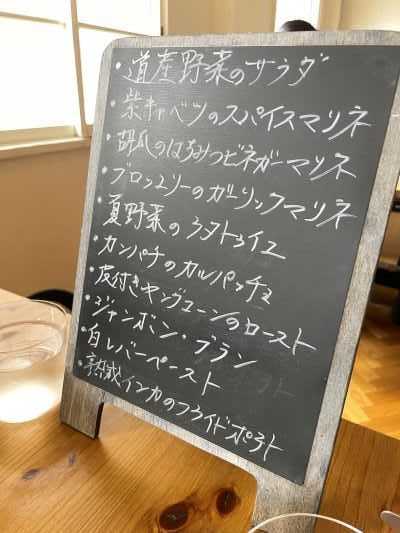 ・道産野菜のサラダ
・紫キャベツのスパイスマリネ
・胡瓜のはちみつビネガーマリネ
・ブロッコリーのガーリックマリネ
・夏野菜のラタトゥイユ
・カンパチのカルパッチョ
・皮付きヤングコーンのロースト
・ジャンボン・ブラン
・白レバーペースト
・熟成インカのフライドポテト